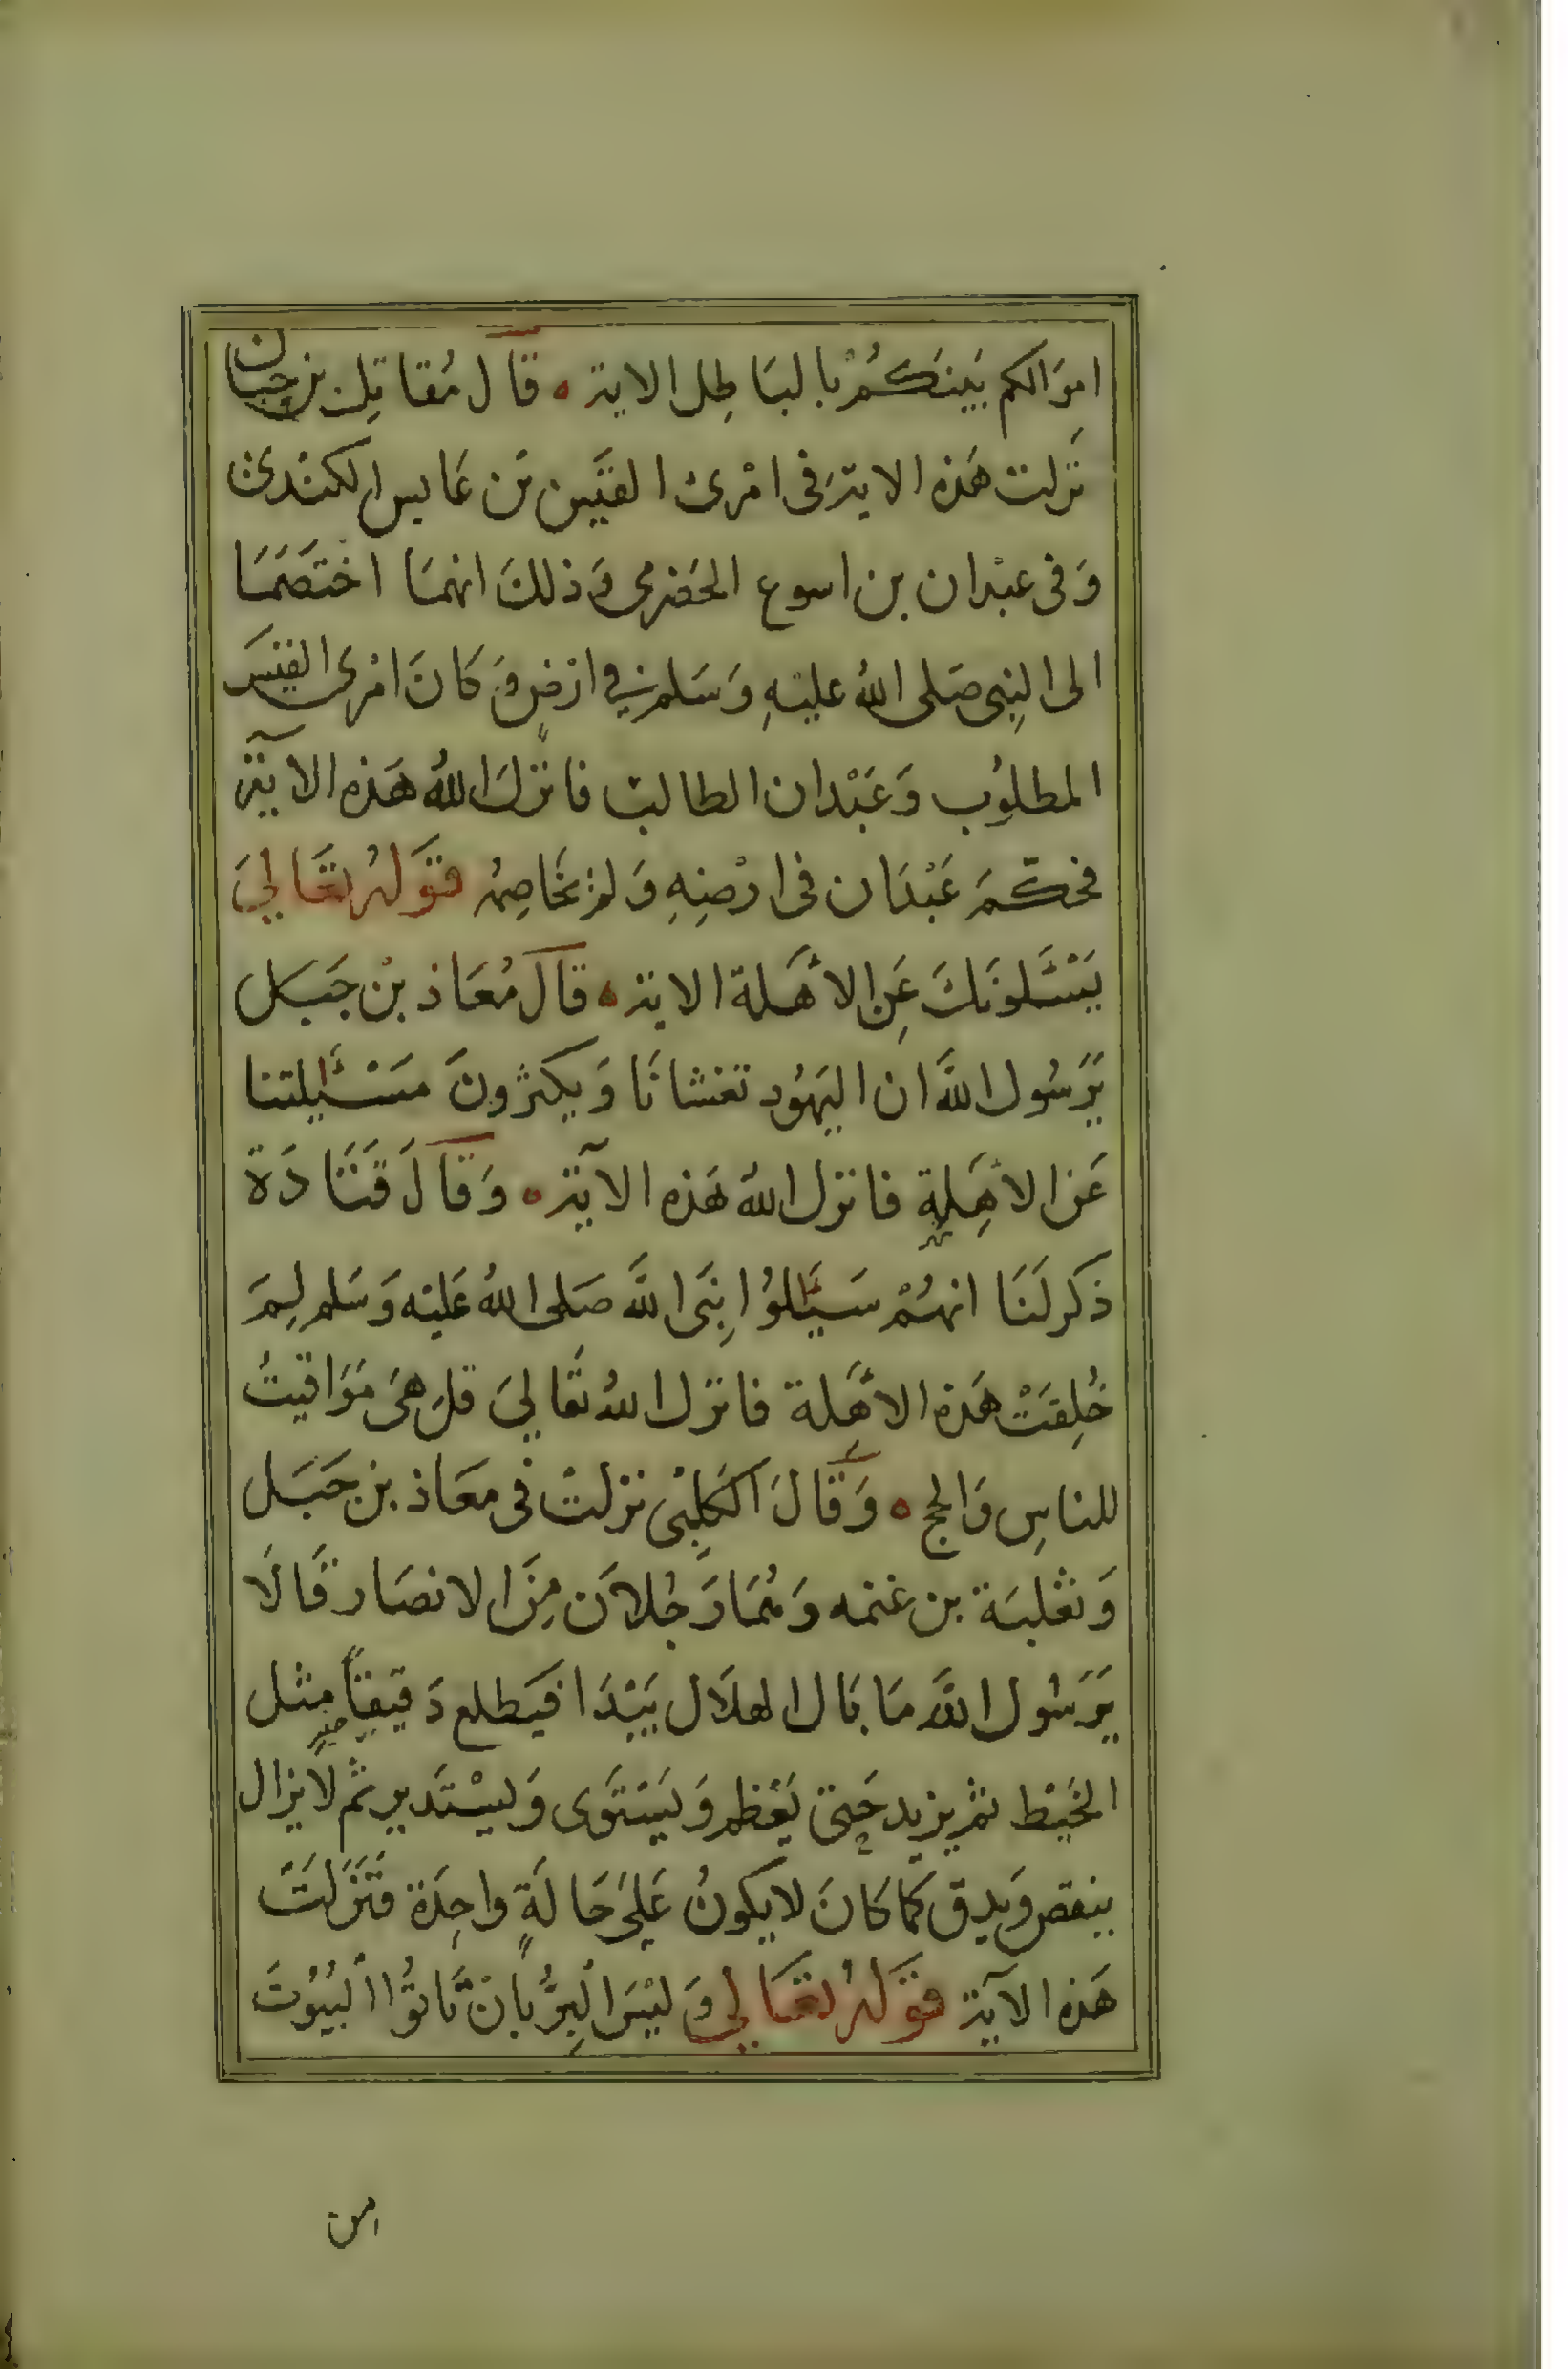 امِوَالكم بَينَكُمْ بالبَاطِل الاية ه قَالَ مُقاتِل بن حِبان
نَزلت هَذه الاية فى امْرئ القَيَس بَن عَابس الكنْدىّ
وَفى عبْدان بن اسوع الحَضرمى وَذلكَ انهمَا اختَصَمَا
الى النِبى صَلى اللهُ عليهِ وَسَلم فى ارْضٍ وَكانَ امْرئ القيسَ
المطلوُب وَعَبْدان الطالب فانزلَ اللهُ هَذه الآية
فحكّمَ عَبْدَان فى ارْضِهِ وَلم يخَاصِمُه قوَلهُ تعَالىَ
يَسْئَلونَكَ عَنِ الأهَلة الاية ه قالَ مُعَاذ بنْ جَبَل
يَرَسُول اللهَّ ان اليَهُود تغشانَا وَيكثرُونَ مسْئَيلتنا
عَن الأهِلةِ فانزل اللهُ هَذه الآية ه وَقالَ قَتَادَة
ذكر لَنَا انهُمْ سَيَئلوُا نِبَى اللهَّ صَلى اللهُ عَليْه وَسَلم لِمَ
خُلِقَتْ هَذه الأهِلة فانزل اللهُ تعَالىَ قل هىَ مَوَاقيتُ
للناسِ وَالحج ه وَقَالَ الكَلِبْى نزلتْ فى معَاذ بن جَبَل
وَثعْلبَة بن غنمه وَهُمَا رَجُلاَن مِنَ الانصَار قَالَا
يَرَسُول اللهَّ مَا بَال الهلَال يَبْدَا فيَطلع دَقيقاً مِثل
الخَيْط ثم يزيد حَتى يَعْظم وَيَسْتَوى وَيسْتَدير ثمّ لَا يزال
ينقص وَيدِق كمَا كَانَ لا يكونُ عَلىَ حَالَةٍ واحِدَة فَنَزَلَتَ
هَذه الآية قوَلهُ تعَالى وَليْسَ الِبرُّ بأنْ تَّاتوُا اْلبُيُوتَ
من